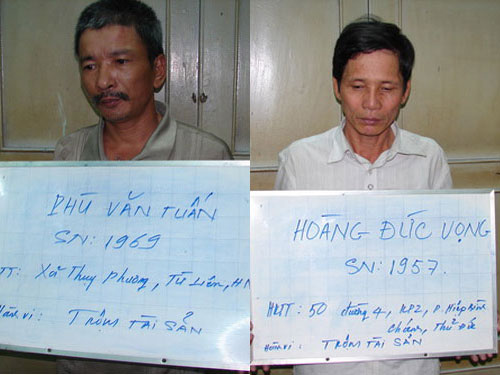 PHÙ VĂN TUẤN
SN: 1969
TT: Xã Thụy Phương, Từ Liêm, HN
Hành vi: TRỘM TÀI SẢN
HOÀNG ĐỨC VỌNG
SN: 1957.
HKTT: 50 đường 4, KP2, P. Hiệp Bình
Chánh, Thủ Đức
Hành vi: TRỘM TÀI SẢN